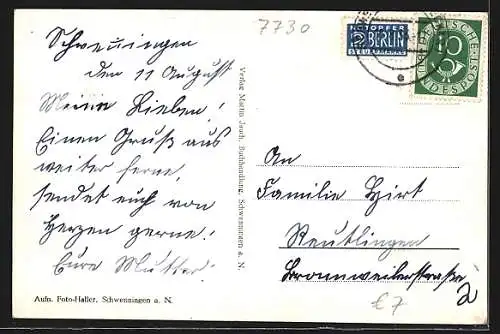 7730
NOTOPFER
2 BERLIN
STEUERMARKE
DEUTSCHE
10
BUNDESPOST
Schwenningen
den 11 August
Meine Lieben!
Einen Gruß aus
weiter ferne,
sendet euch von
Herzen gerne!
Eure Mutter!
Verlag Martin Jauch, Buchhandlung, Schwenningen a. N.
An
Familie Hirt
Reutlingen
Bronnweilerstraße
2
€7
Aufn. Foto-Haller, Schwenningen a. N.